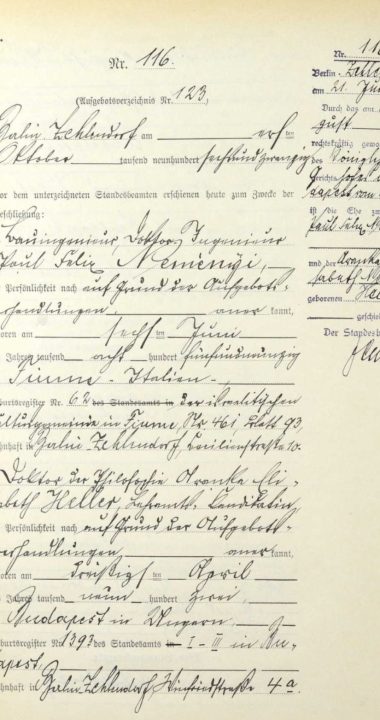 Nr. 116.
(Aufgebotsverzeichnis Nr. 123.)
Berlin Zehlendorf am erst ten
Oktober tausend neunhundert sechsundzwanzig
or dem unterzeichneten Standesbeamten erschienen heute zum Zwecke der
schließung:
Bauingenieur, Doktor Ingenieur
Paul Felix Neményi,
Persönlichkeit nach auf Grund der Aufgebots-
handlungen, aner kannt,
oren am sechs ten Juni
Jahres tausend acht hundert fünfundneunzig
Fiume - Italien -,
burtsregister Nr. 62 des Standesamts in der israelitischen
ultusgemeinde in Fiume, Nr. 461, Blatt 93,
hnhaft in Berlin Zehlendorf, Cecilienstraße 10.
Doktor der Philosophie Aranka Eli-
abeth Heller, Lehramts-Kandidatin,
Persönlichkeit nach auf Grund der Aufgebots-
erhandlungen, aner kannt,
oren am dreißigst ten April
Jahres tausend neun hundert zwei,
Budapest in Ungarn.
burtsregister Nr. 1393 des Standesamts I-III in Bu-
apest,
hnhaft in Berlin Zehlendorf, Winfriedstraße 4a.
Nr. 11
Berlin Zehle
am 21. Jun
Durch das am
gust
rechtskräftig gewo
des Königli
Gerichts
ist die Ehe z
Paul Felix N
und der Aranka
sabeth
geborenen Hel
geschie
Der Standesb